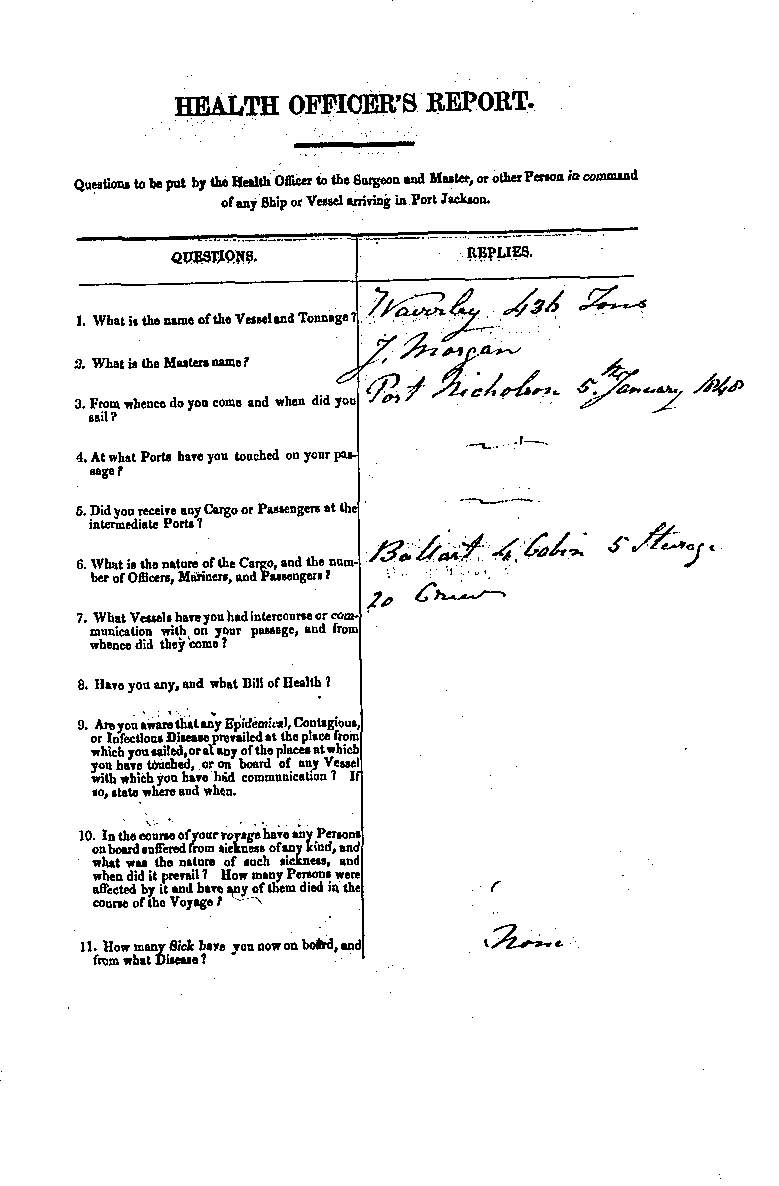 HEALTH OFFICER'S REPORT.
Questions to be put by the Health Officer to the Surgeon and Master, or other Person in command
of any Ship or Vessel arriving in Port Jackson.
QUESTIONS.
REPLIES.
1. What is the name of the Vessel and Tonnage?
Waverley 436 Tons
2. What is the Masters name?
J. Morgan
3. From whence do you come and when did you
sail?
Port Nicholson 5th January 1840
4. At what Ports have you touched on your pas-
sage?
5. Did you receive any Cargo or Passengers at the
intermediate Ports?
6. What is the nature of the Cargo, and the num-
ber of Officers, Mariners, and Passengers?
Ballast 4 Cabin 5 Sterage
20 Crew
7. What Vessels have you had intercourse or com-
munication with on your passage, and from
whence did they come?
8. Have you any, and what Bill of Health?
9. Are you aware that any Epidemical, Contagious,
or Infectious Disease prevailed at the place from
which you sailed, or at any of the places at which
you have touched, or on board of any Vessel
with which you have had communication? If
so, state where and when.
10. In the course of your voyage have any Persons
on board suffered from sickness of any kind, and
what was the nature of such sickness, and
when did it prevail? How many Persons were
affected by it and have any of them died in the
course of the Voyage?
11. How many Sick have you now on board, and
from what Disease?
None